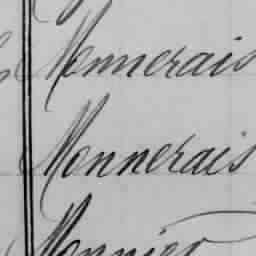 Monnerais
Monnerais
Monnier